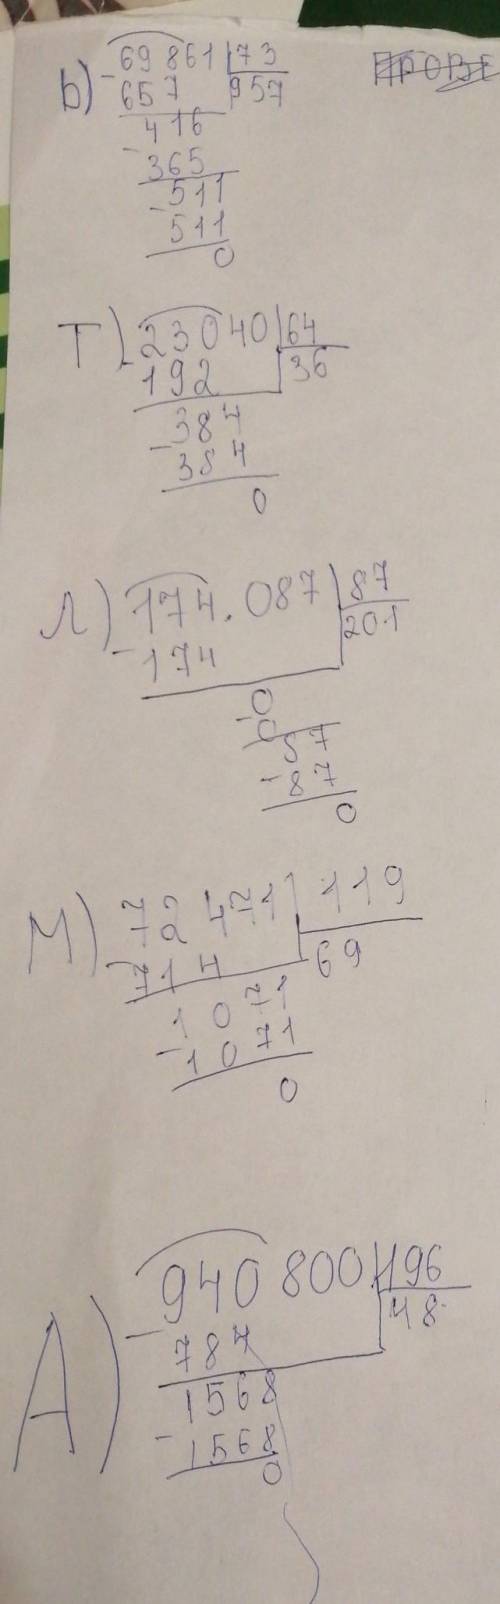 Ь) 69861 73
- 657 957
416
- 365
511
- 511
0
Т) 23040 64
- 192 36
384
- 384
0
Л) 174.087 87
- 174 201
0
- 0
87
- 87
0
М) 72 471 119
- 714 69
1071
- 1071
0
А) 940 800 196
- 784 48
1568
- 1568
0